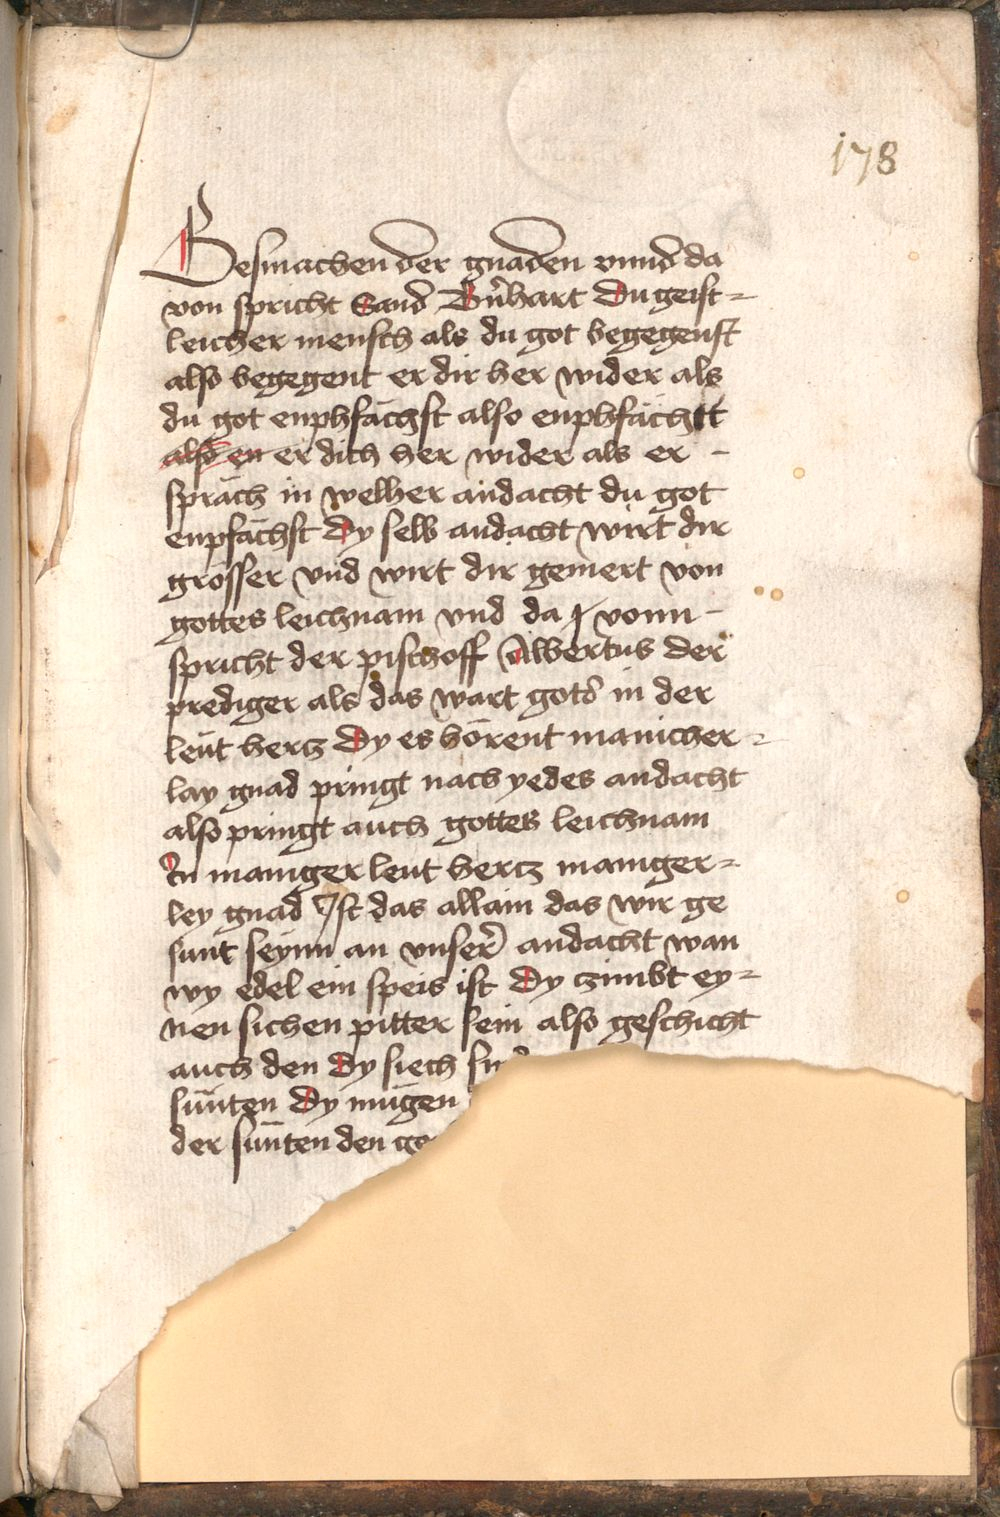 178
Gesmachen der gnaden vnnd da
von spricht Sand Bernhart Du geist=
leicher mensch als du got begegenst
also begegent er dir her wider als
du got enphfächst also enphfächtt
also en er dich her wider als er -
spräch in welher andacht du got
enpfächst Dy selb andacht wirt dir
grösser vnd wirt dir gemert von
gottes leichnam vnd da vonn -
spricht der pischoff Albertus der
prediger als das wart gots in der
leüt hercz Dy es hörent manicher=
lay gnad pringt nach yedes andacht
also pringt auch gottes leichnam
In maniger leut hercz maniger=
ley gnad Ist das allain das wir ge
sunt seynn an vnser andacht wan
wy edel ein speis ist Dy czimbt ey=
nen sichen pitter sein also geschicht
auch den Dy siech
sünten Dy mügen
der sünten den